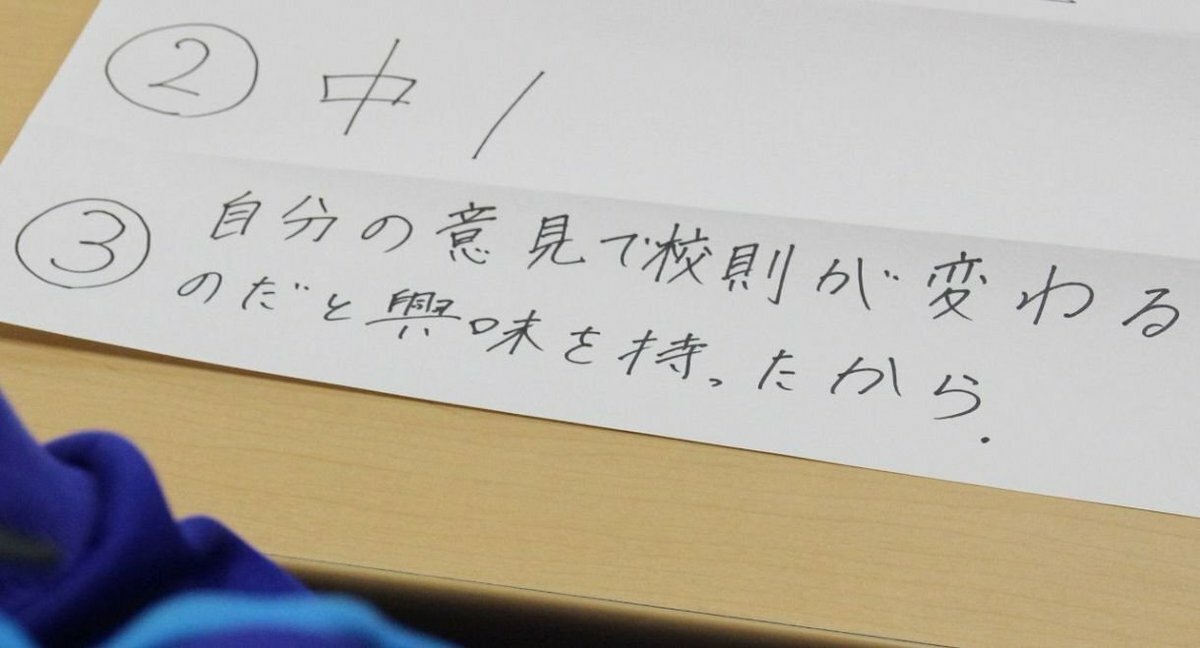 ② 中1
③ 自分の意見で校則が変わる
のだと興味を持ったから.